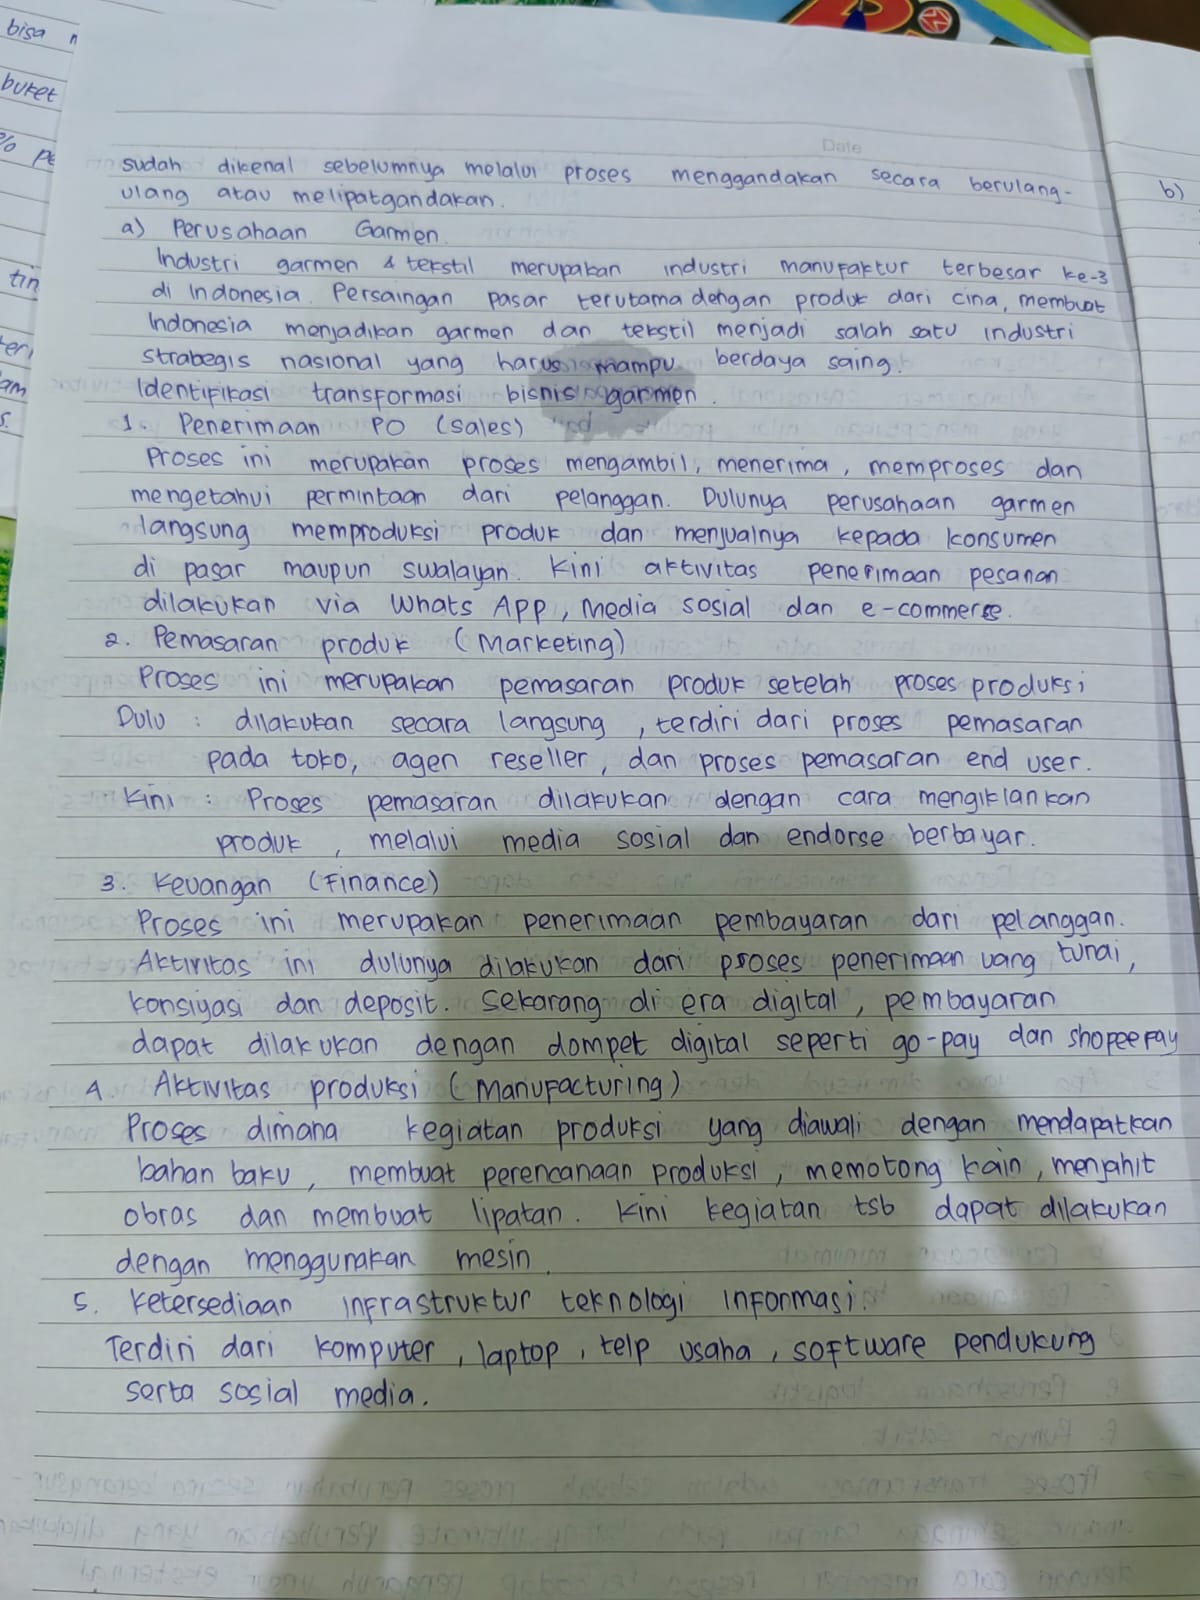 bisa
buket
% pe
tin
Date
sudah dikenal sebelumnya melalui proses menggandakan secara berulang-
ulang atau melipatgandakan.
a) Perusahaan Garmen.
Industri garmen & tekstil merupakan industri manufaktur terbesar ke-3
di Indonesia. Persaingan pasar terutama dengan produk dari cina, membuat
Indonesia menjadikan garmen dan tekstil menjadi salah satu industri
strabegis nasional yang harus mampu berdaya saing.
Identifikasi transformasi bisnis garmen.
1. Penerimaan PO (Sales)
Proses ini merupakan proses mengambil, menerima, memproses dan
mengetahui permintaan dari pelanggan. Dulunya perusahaan garmen
langsung memproduksi produk dan menjualnya kepada konsumen
di pasar maupun swalayan. Kini aktivitas penerimaan pesanan
dilakukan via WhatsApp, Media sosial dan e-commerse.
2. Pemasaran produk (Marketing)
Proses ini merupakan pemasaran produk setelah proses produksi
Dulu : dilakukan secara langsung, terdiri dari proses pemasaran
pada toko, agen reseller, dan proses pemasaran end user.
Kini : Proses pemasaran dilakukan dengan cara mengiklankan
produk, melalui media sosial dan endorse berbayar.
3. Keuangan (Finance)
Proses ini merupakan penerimaan pembayaran dari pelanggan.
Aktivitas ini dulunya dilakukan dari proses penerimaan uang tunai,
konsiyasi dan deposit. Sekarang di era digital, pembayaran
dapat dilakukan dengan dompet digital seperti go-pay dan shopeepay
4. Aktivitas produksi (Manufacturing)
Proses dimana kegiatan produksi yang diawali dengan mendapatkan
bahan baku, membuat perencanaan produksi, memotong kain, menjahit
obras dan membuat lipatan. Kini kegiatan tsb dapat dilakukan
dengan menggunakan mesin.
5. Ketersediaan infrastruktur teknologi informasi.
Terdiri dari komputer, laptop, telp usaha, software pendukung
serta sosial media.
b)